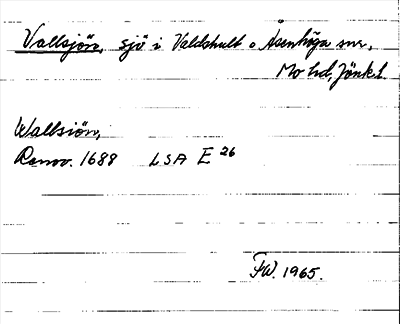 Vallsjön, sjö i Valdshult o Åsenhöga snr,
Mo hd, Jönk.l.
Wallsiön,
Renov. 1688 LSA E 26
FW. 1965.